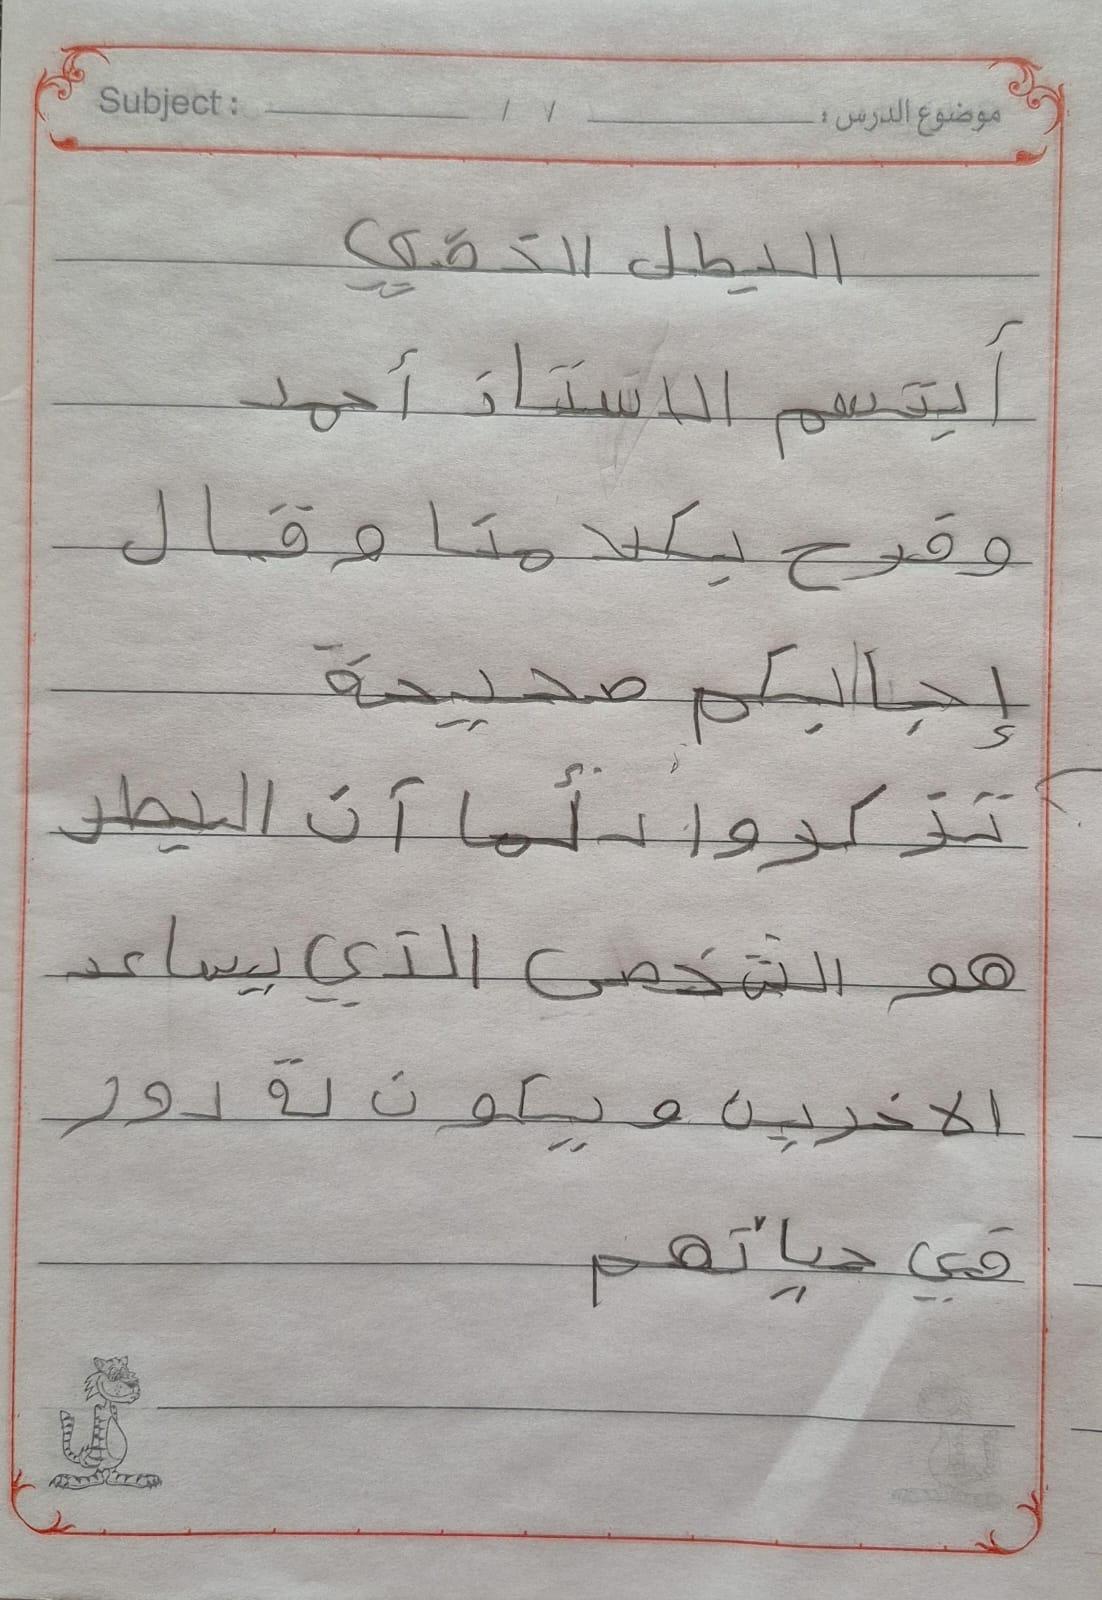 Subject : / / موضوع الدرس :
البطل الخفي
أبتسم الاستاذ أحمد
وفرح بكلا منا وقال
إجاابكم صحيحة
تتذكروا دألما أن البطر
هو الشخص الذي يساعد
الاخرين ويكون لة دور
في حياتهم